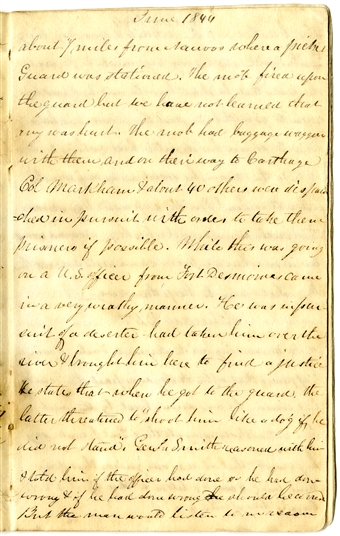 June 1844
about 7 miles from Nauvoo where a picket
Guard was stationed. The mob fired upon
the guard but we have not learned that
any was hurt. The mob had baggage waggons
with them and on their way to Carthage
Col Markham & about 40 others were despat
-ched in pursuit with orders to take them
prisoners if possible. While this was going
on a U.S. officer from Fort Desmoines came
in a very wrathy manner. He was in pur
suit of a deserter had taken him over the
river & brought him here to find a justice
He states that when he got to the guard the
latter threatened to "shoot him like a dog if he
did not stand". Genl. Smith reasoned with him
& told him if the officer had done as he had done
wrong & if he had done wrong he should be
But the man would listen to no reason